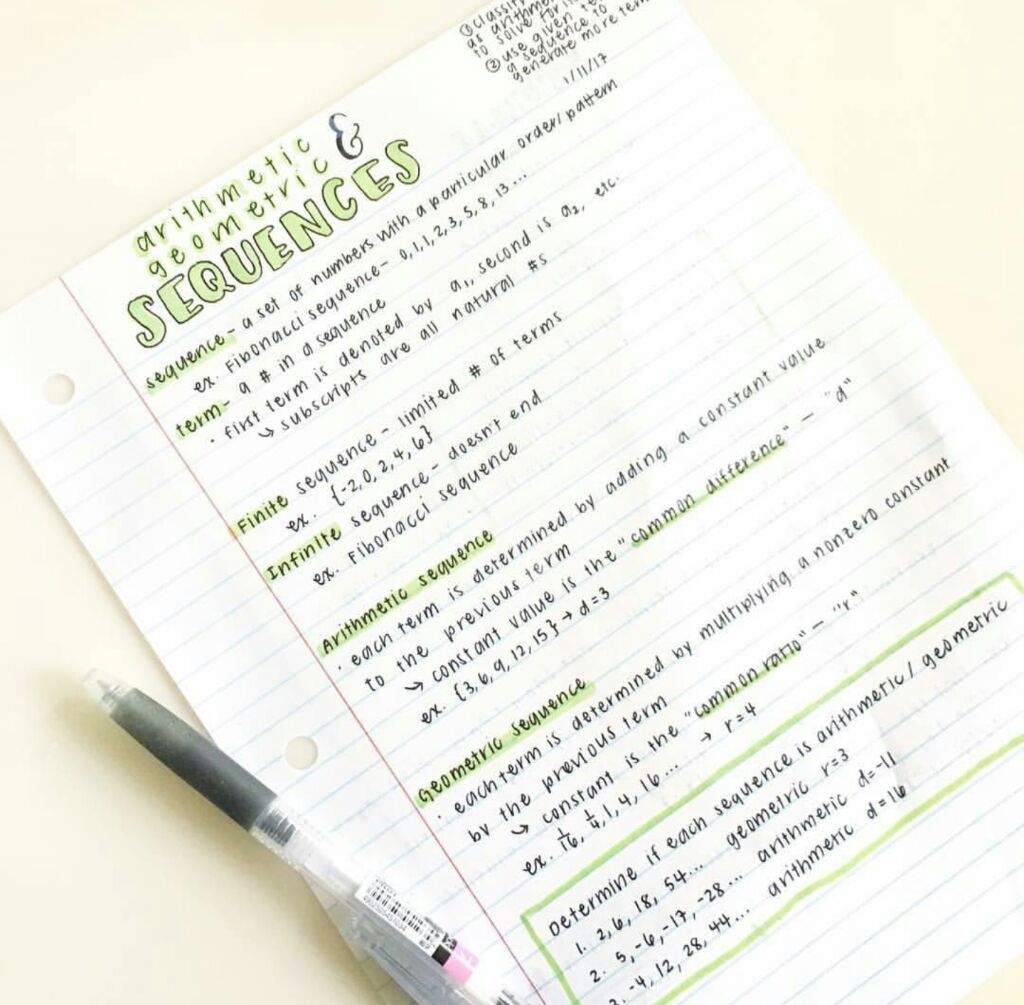 ① classify
as arithmetic
to solve for
② use given
a sequence to
generate more terms
1/11/17
arithmetic &
geometric
SEQUENCES
sequence - a set of numbers with a particular order/pattern
ex. Fibonacci sequence - 0, 1, 1, 2, 3, 5, 8, 13...
term - a # in a sequence
· first term is denoted by a₁, second is a₂, etc.
↳ subscripts are all natural #s
Finite sequence - limited # of terms
ex. {-2, 0, 2, 4, 6}
Infinite sequence - doesn't end
ex. Fibonacci sequence
Arithmetic sequence
· each term is determined by adding a constant value
to the previous term
↳ constant value is the "common difference" - "d"
ex. {3, 6, 9, 12, 15} → d=3
Geometric sequence
· each term is determined by multiplying a nonzero constant
by the previous term
↳ constant is the "common ratio" - "r"
ex. 1/16, 1/4, 1, 4, 16... → r=4
Determine if each sequence is arithmetic/geometric
1. 2, 6, 18, 54... geometric r=3
2. 5, -6, -17, -28... arithmetic d=-11
3. -4, 12, 28, 44... arithmetic d=16